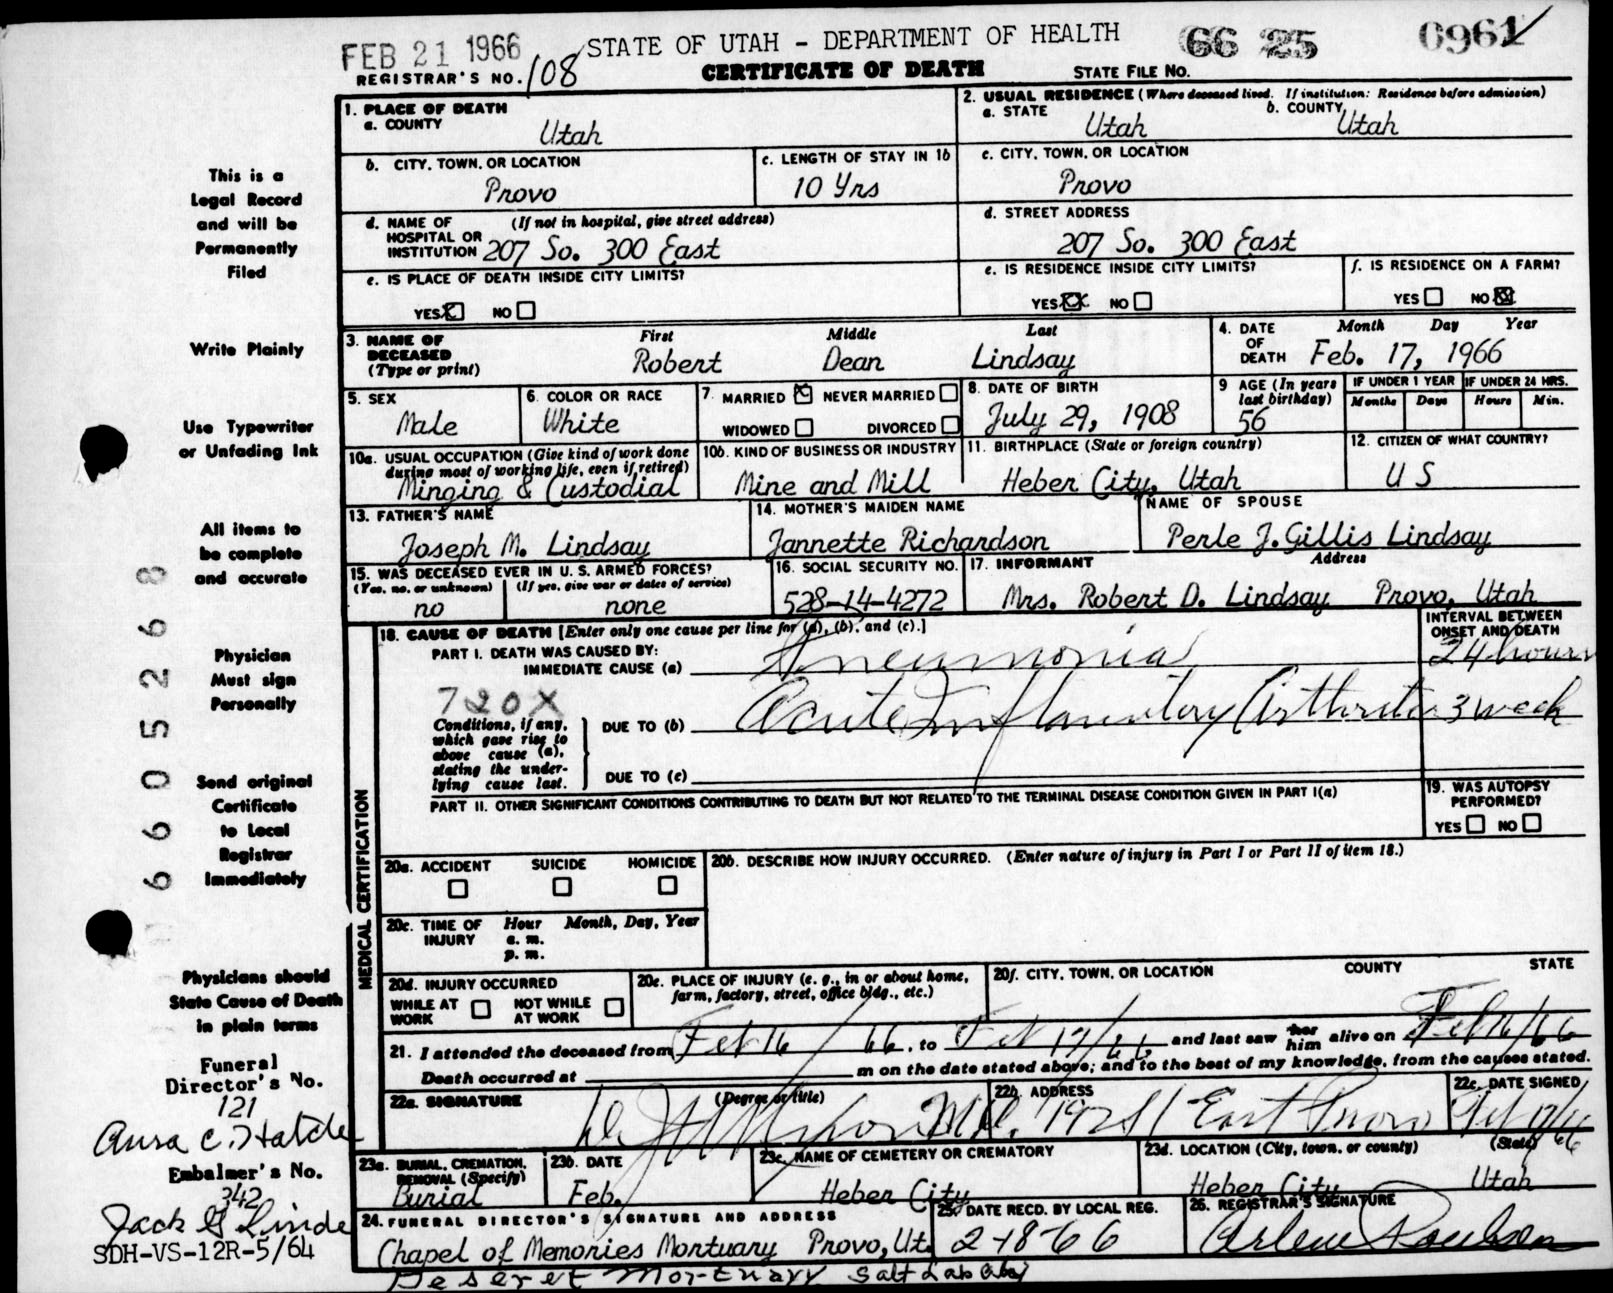 FEB 21 1966 STATE OF UTAH - DEPARTMENT OF HEALTH 66 25 0961
REGISTRAR'S NO. 108 CERTIFICATE OF DEATH STATE FILE NO.
1. PLACE OF DEATH
a. COUNTY
Utah
2. USUAL RESIDENCE (Where deceased lived. If institution: Residence before admission)
a. STATE b. COUNTY
Utah Utah
b. CITY, TOWN, OR LOCATION
Provo
c. LENGTH OF STAY IN 1b
10 Yrs
c. CITY, TOWN, OR LOCATION
Provo
d. NAME OF (If not in hospital, give street address)
HOSPITAL OR
INSTITUTION 207 So. 300 East
d. STREET ADDRESS
207 So. 300 East
e. IS PLACE OF DEATH INSIDE CITY LIMITS?
YES NO
e. IS RESIDENCE INSIDE CITY LIMITS?
YES NO
f. IS RESIDENCE ON A FARM?
YES NO
3. NAME OF First Middle Last
DECEASED
(Type or print) Robert Dean Lindsay
4. DATE Month Day Year
OF
DEATH Feb. 17, 1966
5. SEX
Male
6. COLOR OR RACE
White
7. MARRIED NEVER MARRIED
WIDOWED DIVORCED
8. DATE OF BIRTH
July 29, 1908
9 AGE (In years
last birthday)
56
IF UNDER 1 YEAR IF UNDER 24 HRS.
Months Days Hours Min.
10a. USUAL OCCUPATION (Give kind of work done
during most of working life, even if retired)
Minging & Custodial
10b. KIND OF BUSINESS OR INDUSTRY
Mine and Mill
11. BIRTHPLACE (State or foreign country)
Heber City, Utah
12. CITIZEN OF WHAT COUNTRY?
U S
13. FATHER'S NAME
Joseph M. Lindsay
14. MOTHER'S MAIDEN NAME
Jannette Richardson
NAME OF SPOUSE
Perle J. Gillis Lindsay
15. WAS DECEASED EVER IN U. S. ARMED FORCES?
(Yes, no, or unknown) (If yes, give war or dates of service)
no none
16. SOCIAL SECURITY NO.
528-14-4272
17. INFORMANT Address
Mrs. Robert D. Lindsay Provo, Utah
MEDICAL CERTIFICATION
18. CAUSE OF DEATH [Enter only one cause per line for (a), (b), and (c).]
INTERVAL BETWEEN
ONSET AND DEATH
PART I. DEATH WAS CAUSED BY:
IMMEDIATE CAUSE (a) Pneumonia 24 hours
720X
Conditions, if any,
which gave rise to
above cause (a),
stating the under-
lying cause last.
DUE TO (b) Acute Inflammatory Arthritis 3 week
DUE TO (c)
PART II. OTHER SIGNIFICANT CONDITIONS CONTRIBUTING TO DEATH BUT NOT RELATED TO THE TERMINAL DISEASE CONDITION GIVEN IN PART I(a)
19. WAS AUTOPSY
PERFORMED?
YES NO
20a. ACCIDENT SUICIDE HOMICIDE
20b. DESCRIBE HOW INJURY OCCURRED. (Enter nature of injury in Part I or Part II of item 18.)
20c. TIME OF Hour Month, Day, Year
INJURY a. m.
p. m.
20d. INJURY OCCURRED
WHILE AT NOT WHILE
WORK AT WORK
20e. PLACE OF INJURY (e. g., in or about home,
farm, factory, street, office bldg., etc.)
20f. CITY, TOWN, OR LOCATION COUNTY STATE
21. I attended the deceased from Feb 16 / 66, to Feb 17/66, and last saw her him alive on Feb 16/66
Death occurred at m on the date stated above; and to the best of my knowledge, from the causes stated.
22a. SIGNATURE (Degree or title)
M.D.
22b. ADDRESS
East Provo
22c. DATE SIGNED
Feb 17/66
23a. BURIAL, CREMATION,
REMOVAL (Specify)
Burial
23b. DATE
Feb.
23c. NAME OF CEMETERY OR CREMATORY
Heber City
23d. LOCATION (City, town, or county) (State)
Heber City Utah
24. FUNERAL DIRECTOR'S SIGNATURE AND ADDRESS
Chapel of Memories Mortuary Provo, Ut.
Deseret Mortuary Salt Lake City
25. DATE RECD. BY LOCAL REG.
2-18-66
26. REGISTRAR'S SIGNATURE
Arlene Poulson
This is a
Legal Record
and will be
Permanently
Filed
Write Plainly
Use Typewriter
or Unfading Ink
All items to
be complete
and accurate
Physician
Must sign
Personally
Send original
Certificate
to Local
Registrar
Immediately
Physicians should
State Cause of Death
in plain terms
Funeral
Director's No.
121
Embalmer's No.
342
SDH-VS-12R-5/64
6 6 0 5 2 6 8